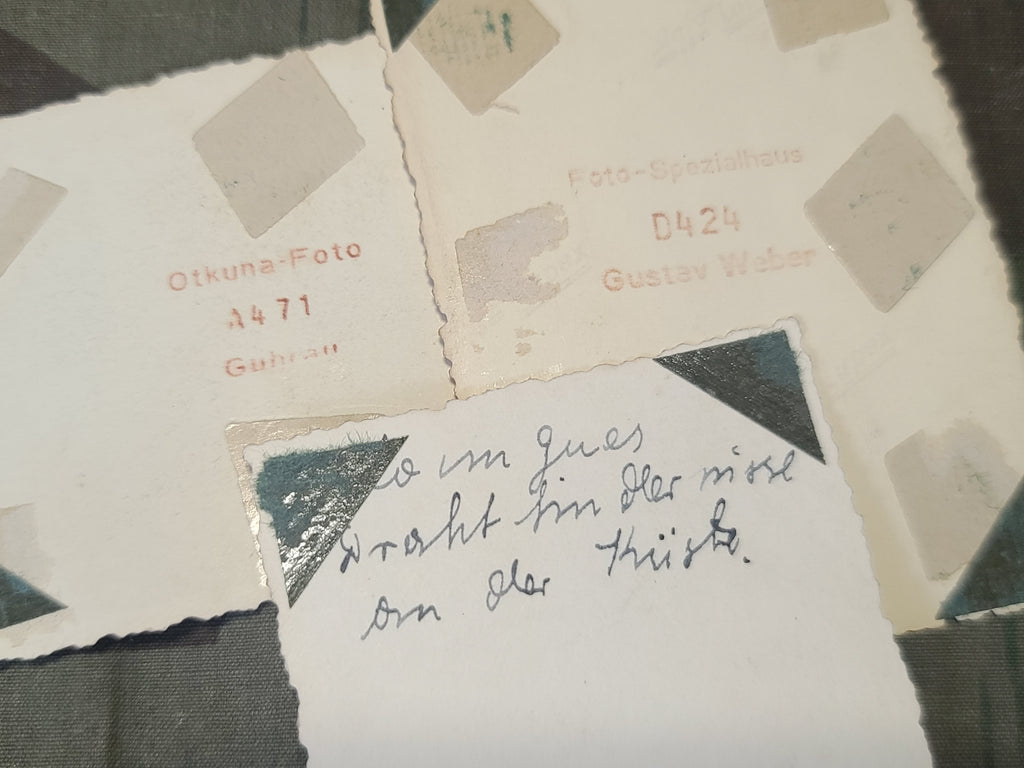 Otkuna-Foto
A471
Guhrau
Foto-Spezialhaus
D424
Gustav Weber
im
Draht in der
an der Küste.